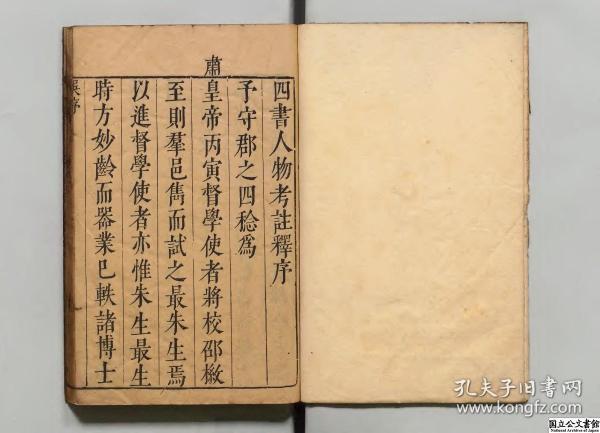 四書人物考註釋序
予守郡之四稔為
肅皇帝丙寅督學使者將校邵檄
至則羣邑雋而試之最朱生焉
以進督學使者亦惟朱生最生
時方妙齡而器業已軼諸博士
孔夫子旧书网
www.kongfz.com
国立公文書館
National Archives of Japan